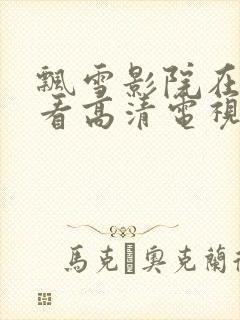 飄雪影院在
看高清電視
馬克·奧克蘭